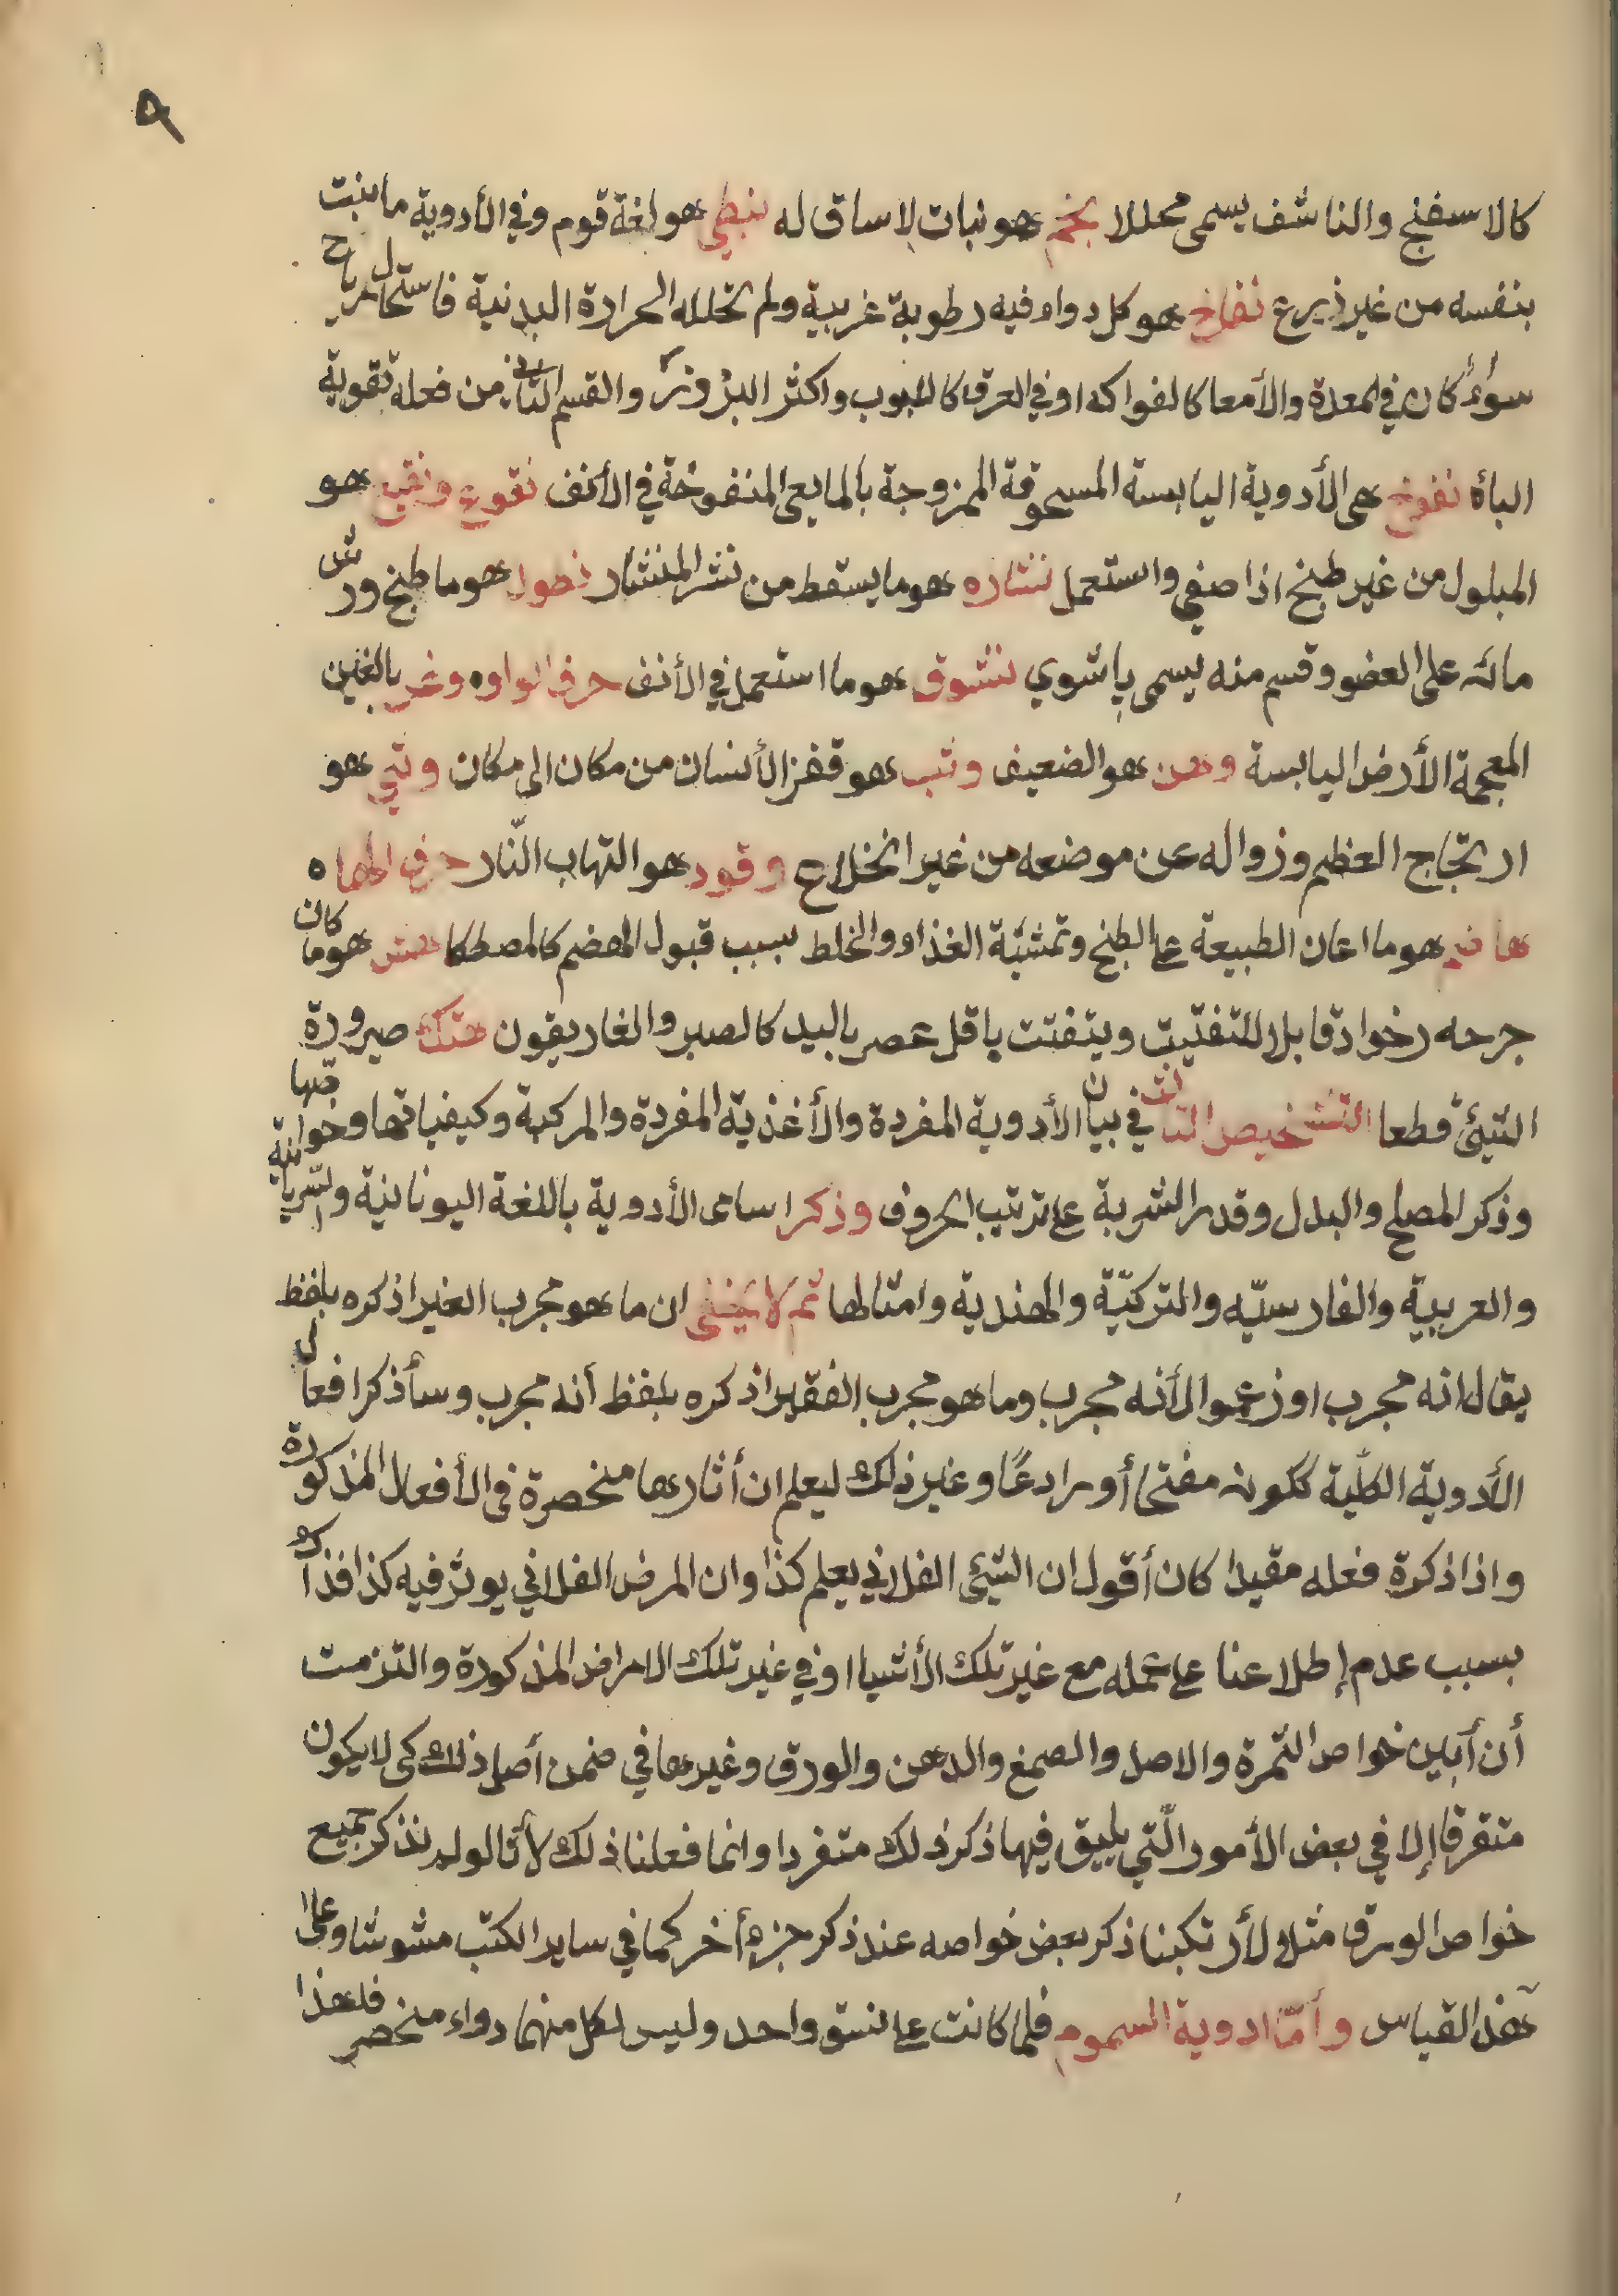 ٩
كالاسفنج والناشف يسمى محللا نجم هو نبات لاساق له نبطي هو لغة قوم وفي الأدوية ما ينبت
بنفسه من غير زرع نفاخ هو كل دواء فيه رطوبة غريبة ولم تحلله الحرارة البدنية فاستحال رياح
سواءً كان في المعدة والأمعا كالفواكه او في العرق كالحبوب واكثر البزور والقسم الثاني من فعله تقوية
الباه نفوخ هى الأدوية اليابسة المسحوقة الممزوجة بالمايعى المنفوخة في الأنف نقوع ونقيع هو
المبلول من غير طبخ اذا صفي واستعمل نشاره هو ما يسقط من نشر المنشار نطول هو ما طبخ ورش
مائه على العضو وقسم منه يسمى پاشوي نشوق هو ما استعمل في الأنف حرف الواو ه وغر بالغين
المعجمة الأرض اليابسة وهن هو الضعيف وثب هو قفز الأنسان من مكان الى مكان وثي هو
ارتجاج العظم وزواله عن موضعه من غير انخلاع وقود هو التهاب النّار حرف الهاء ه
هاضم هو ما اعان الطبيعة على الطبخ وتمشيّة الغذاء والخلط بسبب قبول الهضم كالمصطكا هش هو ما كان
جرحه رخوا قابلا للتفتيت ويتفتت باقل عصر باليد كالصبر والغاريقون هتك صيرورة
الشيئ قطعا التشخيص الثالث في بيان الأدوية المفردة والأغذية المفردة والمركبة وكيفياتها وخواصّها
وذكر المصلح والبدل وقدر الشربة على ترتيب الحروف وذكر اسامى الأدوية باللغة اليونانية والسّريانية
والعربية والفارسيّه والتركيّة والهندية وامثالها ثم لا يخفى ان ما هو مجرب الغير اذكره بلفظ
يقال انه مجرب او زعموا الى أنه مجرب وما هو مجرب الفقير اذكره بلفظ أنه مجرب وسأذكر افعال
الأدوية الكلّية ككونه مفتحا أو رادعًا وغير ذلك ليعلم ان أثارها منحصرة فى الأفعال المذكورة
واذا ذكرة فعله مقيدا كان أقول ان الشيئ الفلاني يعلم كذا وان المرض الفلاني يوثر فيه كذا فذاك
بسبب عدم إطلاعنا على عمله مع غير تلك الأشيا او في غير تلك الامراض المذكورة والتزمت
أن أبين خواص الثمرة والاصل والصمغ والدهن والورق وغيرها في ضمن أصل ذلك كى لا يكون
متفرقا إلا في بعض الأمور الّتي يليق فيها ذكر ذلك متفردا وانما فعلنا ذلك لأنا لو لم نذكر جميع
خواص الورق مثلا لأرتكبنا ذكر بعض خواصه عند ذكر جزء أخر كما في ساير الكتب مشوشا وعلى
هذا القياس وأمّا ادوية السموم فلما كانت على نسق واحد وليس لكل منهما دواء منحصر فلهذا